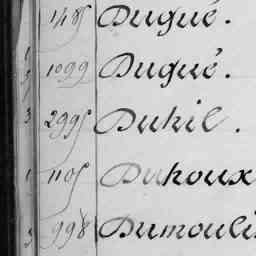 1485 Dugué.
1099 Dugué.
3 2995 Duhil.
1105 Duhoux
3 998 Dumouli